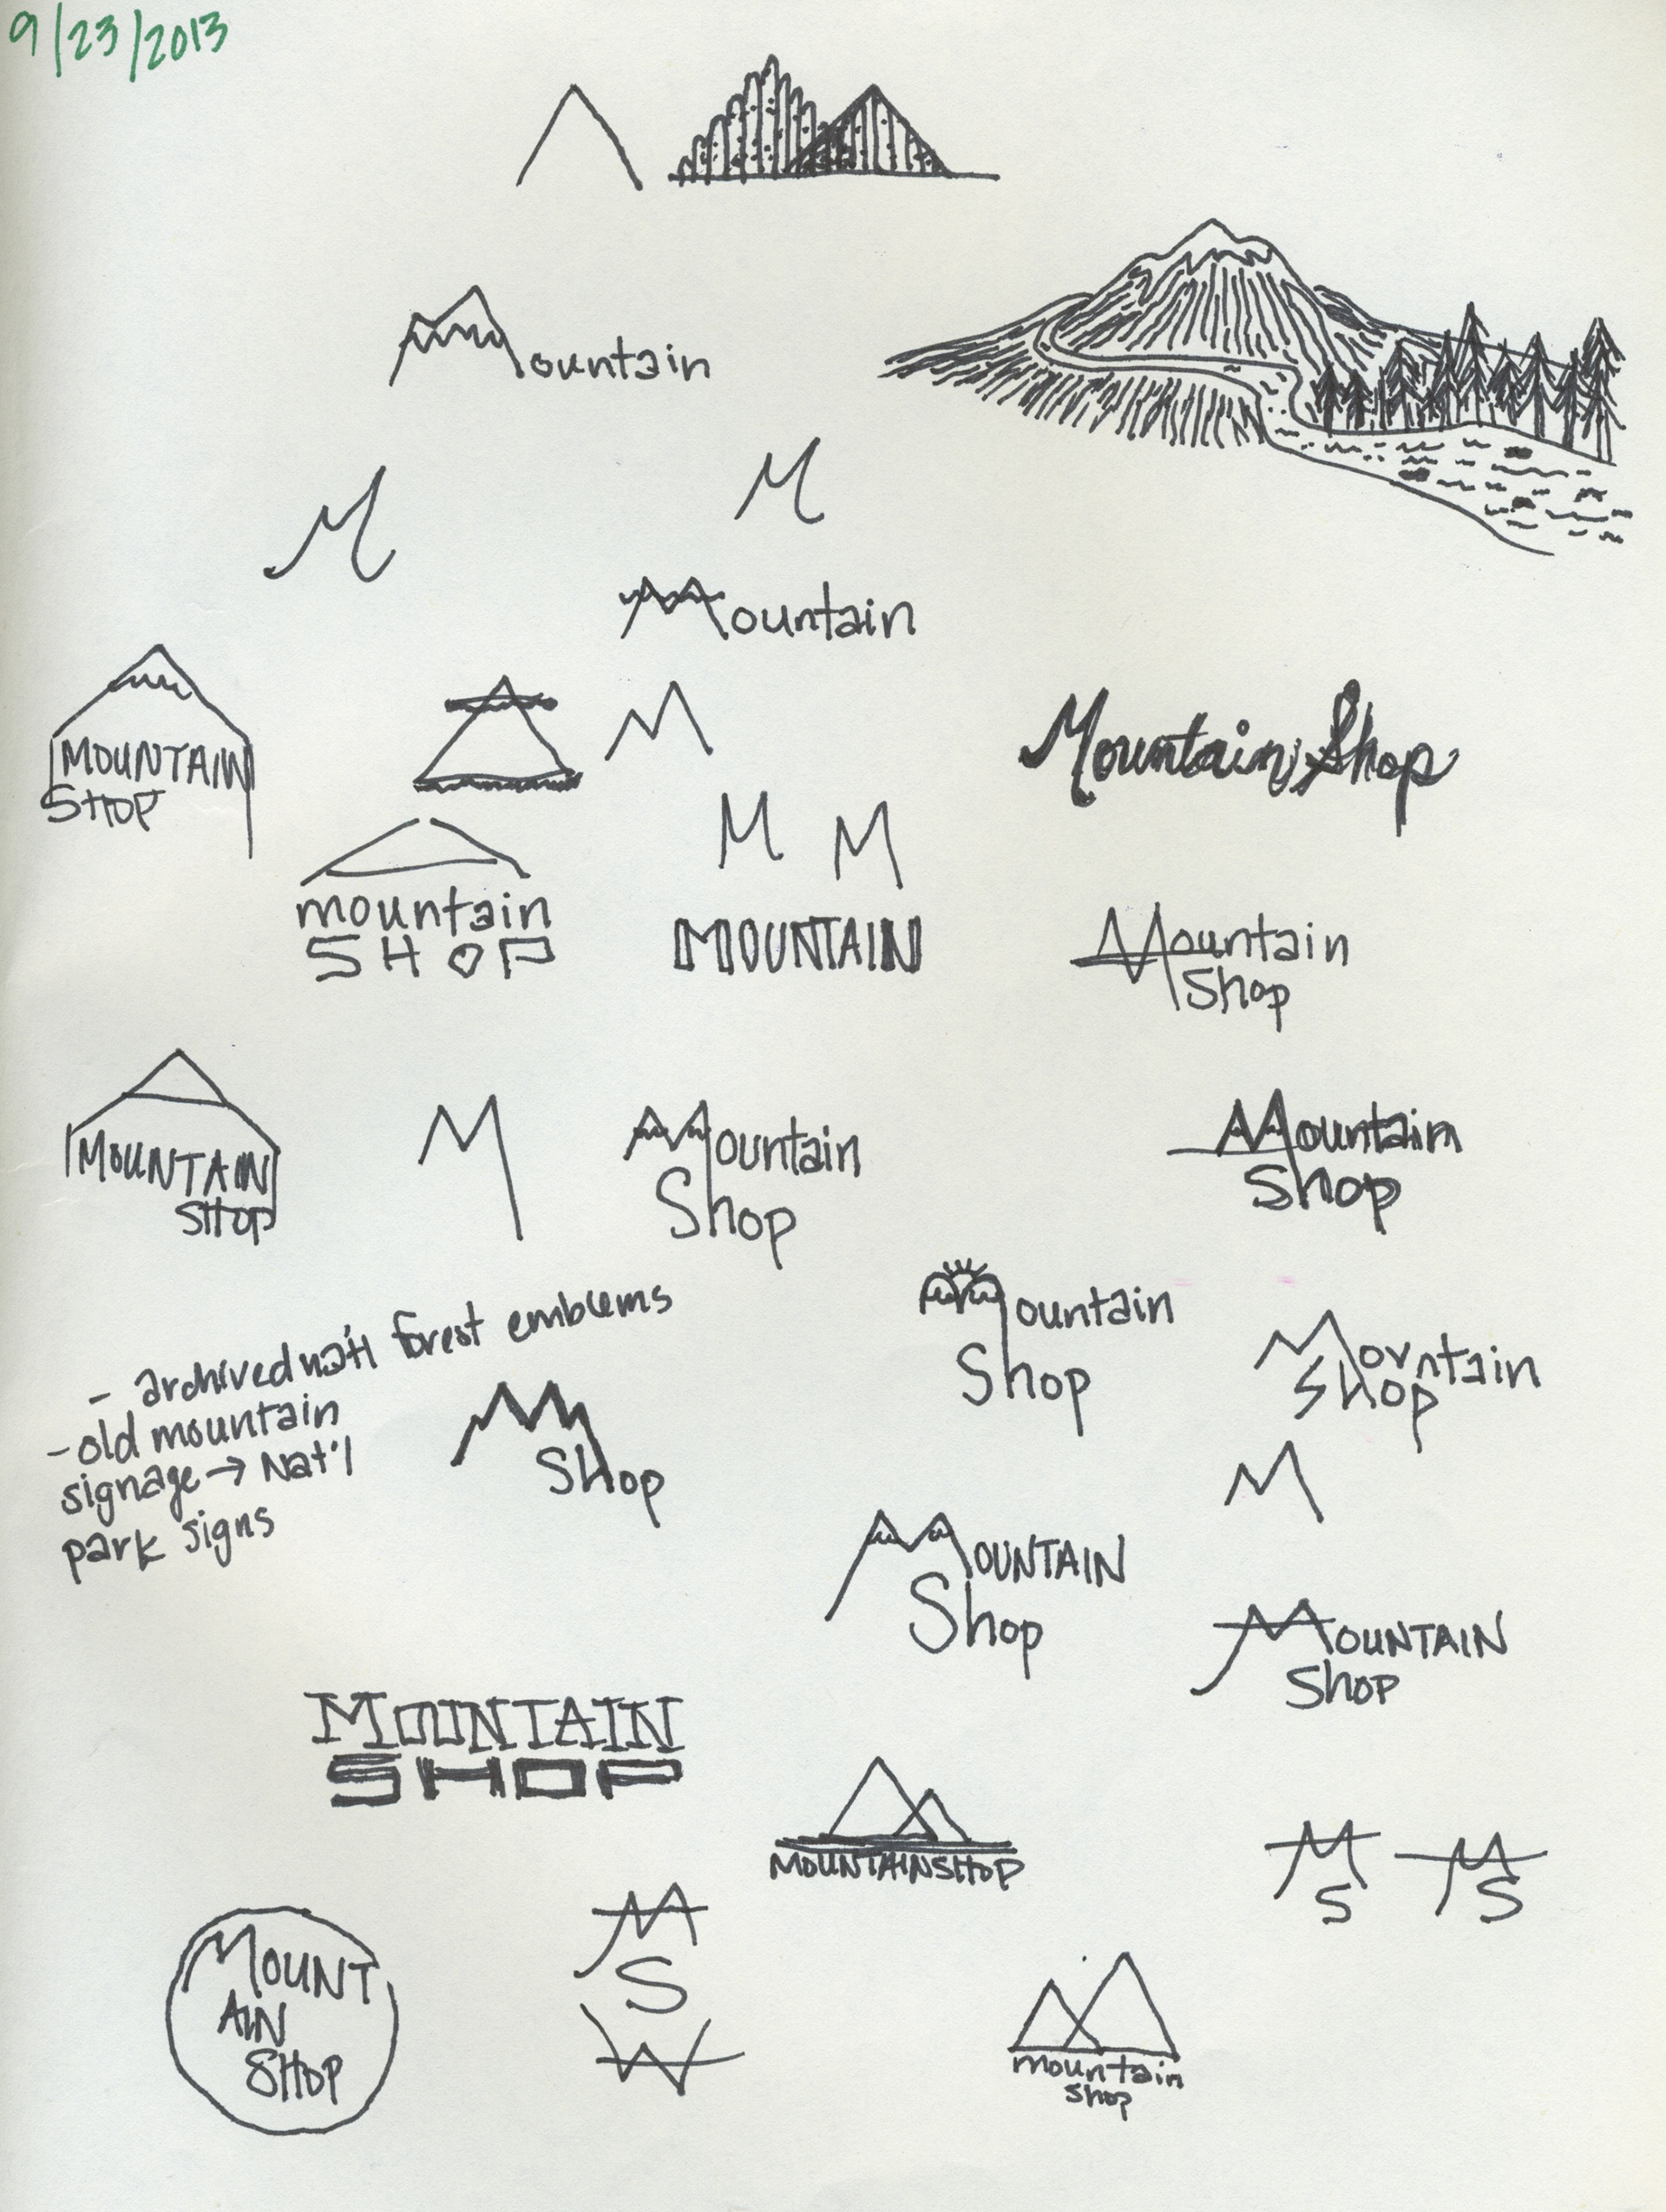 9/23/2013
Mountain
M
M
Mountain
MOUNTAIN
SHOP
M
Mountain Shop
M M
mountain
SHOP
MOUNTAIN
Mountain
Shop
MOUNTAIN
SHOP
M
Mountain
Shop
Mountain
Shop
- archived nat'l forest emblems
- old mountain
signage → Nat'l
park signs
M
Shop
Mountain
Shop
Mountain
Shop
M
MOUNTAIN
Shop
MOUNTAIN
Shop
MOUNTAIN
SHOP
MOUNTAINSHOP
M
S
M
S
MOUNT
AIN
SHOP
M
S
W
mountain
shop